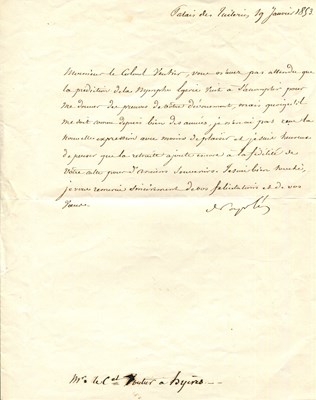 Palais des Tuileries, 19 Janvier 1853.
Monsieur le Colonel Voutier, vous n'avez pas attendu que
la prédiction de la Nymphe Egérie vint à s'accomplir pour
me donner des preuves de votre dévouement, mais quoiqu'il
me soit connu depuis bien des années, je n'en ai pas reçu la
nouvelle expression avec moins de plaisir et je suis heureux
de penser que la retraite ajoute encore à la fidélité de
votre culte pour d'anciens souvenirs. J'en suis bien touché,
je vous remercie sincèrement de vos félicitations et de vos
vœux.
Napoléon
Mr. le Cel Voutier à Hyères